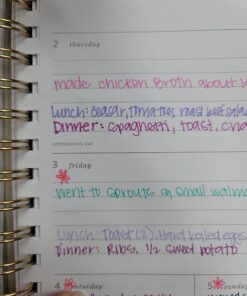 2 thursday
made chicken Broth about
Lunch: Ceasar, Tomatoes roast beef sala
Dinner: Spaghetti, toast,
GROUNDHOG DAY
3 friday
went to Sprouts an small walma
Lunch: Toast (2), Hard boiled eggs
Dinner: Ribs. 1/2 Sweet potato
4 saturday
5 sunday